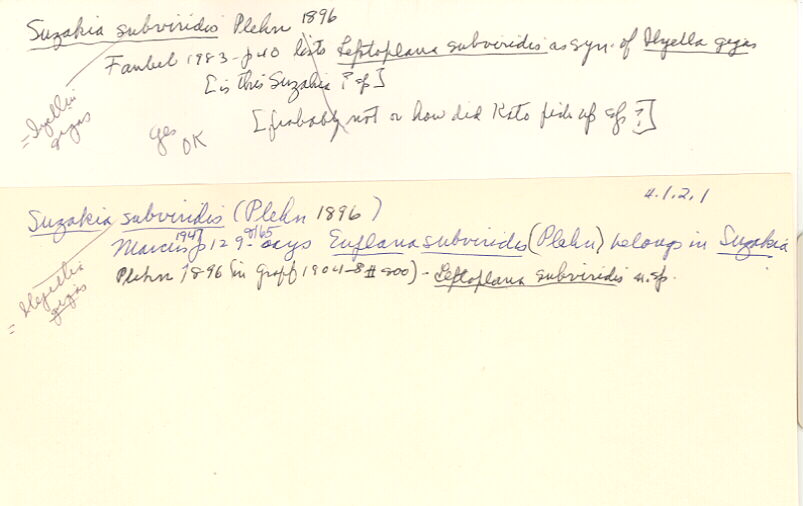 Suzakia subviridis Plehn 1896
Faubel 1983 - p40 lists Leptoplana subviridis as syn. of Ilyella gigas
[is this Suzakia ? sp]
= Ilyella gigas
yes OK
[probably not or how did Kato pick up sp?]
4.1.2.1
Suzakia subviridis (Plehn 1896)
Marcus 1947 p129 165 says Euplana subviridis (Plehn) belongs in Suzakia
Plehn 1896 (in Graff 1904-8 # 200) - Leptoplana subviridis n.sp.
= Ilyella gigas